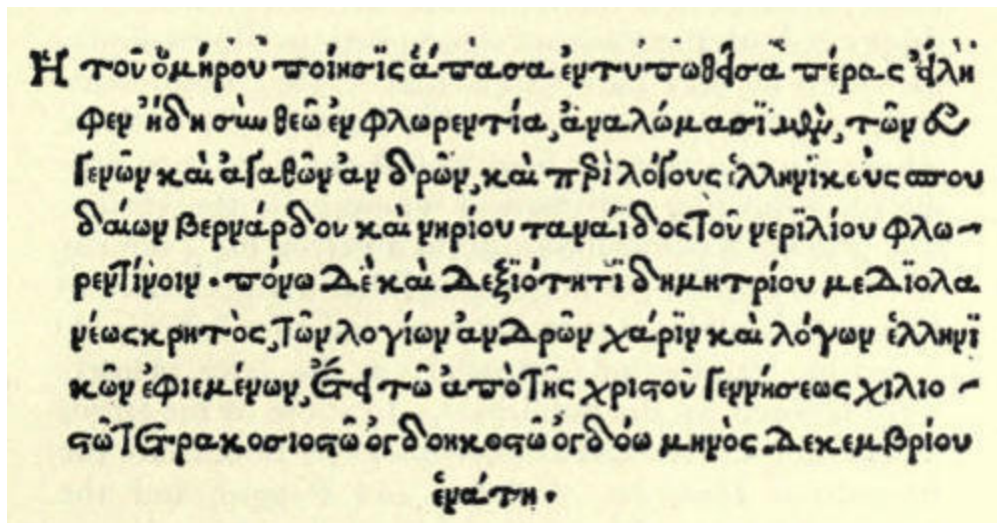 Ἡ τοῦ ὁμήρου ποίησις ἅπασα ἐντυπωθεῖσα πέρας εἴλη
φεν ἤδη σὺν θεῷ ἐν φλωρεντίᾳ, ἀναλώμασι μὲν, τῶν εὐ
γενῶν καὶ ἀγαθῶν ἀνδρῶν, καὶ περὶ λόγους ἑλληνικοὺς σπου
δαίων βερνάρδου καὶ νηρίου ταναΐδος τοῦ νεριλίου φλω-
ρεντίνοιν · πόνῳ δὲ καὶ δεξιότητι δημητρίου μεδιολα
νέως κρητὸς, τῶν λογίων ἀνδρῶν χάριν καὶ λόγων ἑλληνι
κῶν ἐφιεμένων, ἔτει τῷ ἀπὸ τῆς χριστοῦ γεννήσεως χιλιο -
στῷ τετρακοσιοστῷ ὀγδοηκοστῷ ὀγδόῳ μηνὸς Δεκεμβρίου
ἐνάτῃ ·